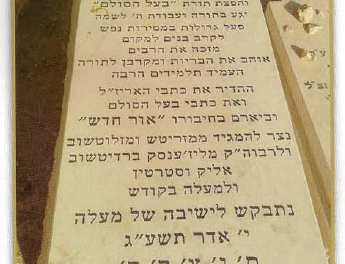 והפצת תורת "בעל הסולם"
יגע בתורה ועבודת ה' לשמה
פעל גדולות במסירות נפש
לקרב בנים למקום
מזכה את הרבים
אוהב את הבריות ומקרבן לתורה
העמיד תלמידים הרבה
ההדיר את כתבי האריז"ל
ואת כתבי בעל הסולם
וביארם בחיבורו "אור חדש"
נצר להמגיד ממזריטש ומזלוטשוב
ולרבוה"ק מליז'ענסק ברדיטשוב
אליק וסטרטין
ולמעלה בקודש
נתבקש לישיבה של מעלה
י' אדר תשע"ג
ת' נ' צ' ב' ה'